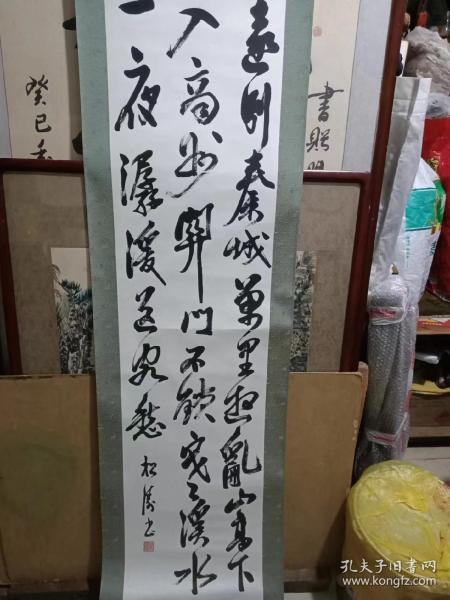 遠別秦城萬里遊亂山高下
入商州關門不鎖寒溪水
一夜潺湲送客愁
松 書
癸巳
書贈
孔夫子旧书网
www.kongfz.com